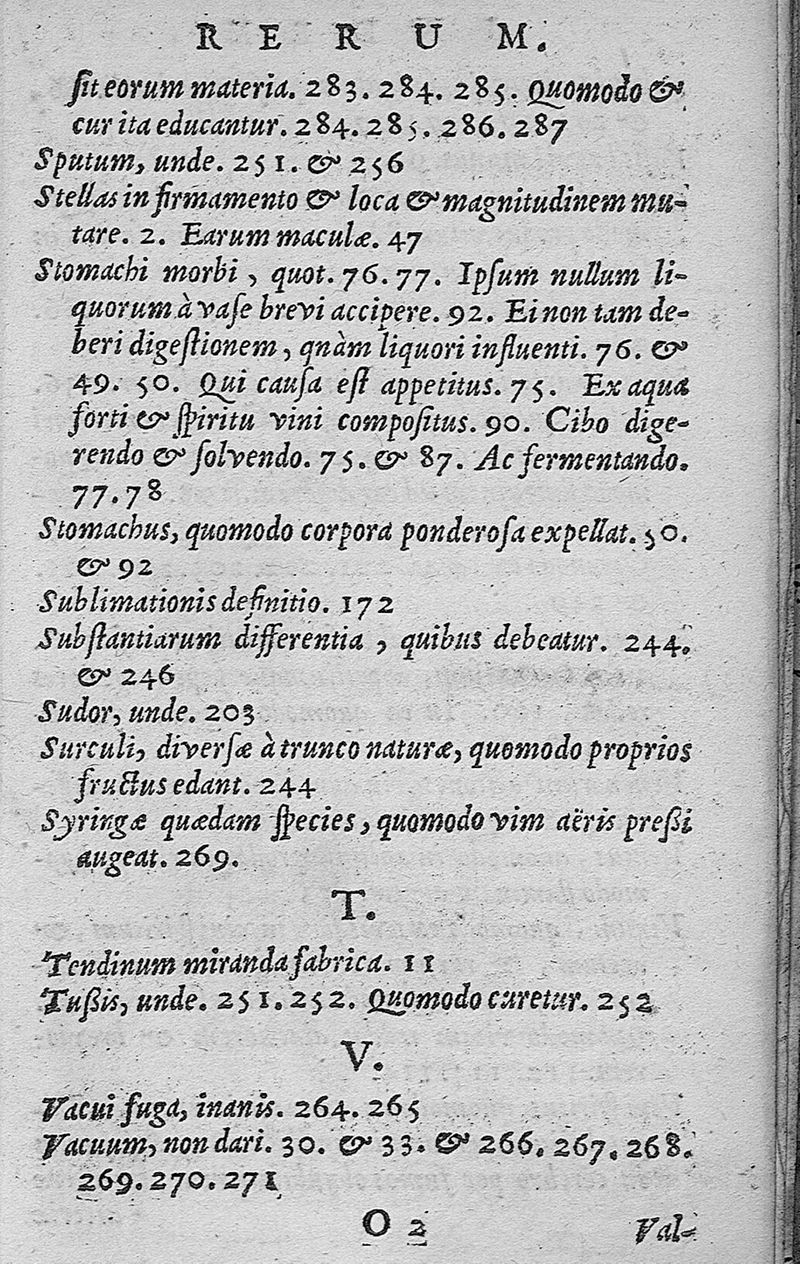 R E R U M.
ſit eorum materia. 283. 284. 285. Quomodo &
cur ita educantur. 284. 285. 286. 287
Sputum, unde. 251. & 256
Stellas in firmamento & loca & magnitudinem mu-
tare. 2. Earum maculæ. 47
Stomachi morbi, quot. 76. 77. Ipſum nullum li-
quorum à vaſe brevi accipere. 92. Ei non tam de-
beri digeſtionem, qnàm liquori influenti. 76. &
49. 50. Qui cauſa eſt appetitus. 75. Ex aqua
forti & ſpiritu vini compoſitus. 90. Cibo dige-
rendo & ſolvendo. 75. & 87. Ac fermentando.
77. 78
Stomachus, quomodo corpora ponderoſa expellat. 50.
& 92
Sublimationis definitio. 172
Subſtantiarum differentia, quibus debeatur. 244.
& 246
Sudor, unde. 203
Surculi, diverſæ à trunco naturæ, quomodo proprios
fructus edant. 244
Syringæ quædam ſpecies, quomodo vim aëris preßi
augeat. 269.
T.
Tendinum miranda fabrica. 11
Tußis, unde. 251. 252. Quomodo curetur. 252
V.
Vacui fuga, inanis. 264. 265
Vacuum, non dari. 30. & 33. & 266. 267. 268.
269. 270. 271
O 2 Val-